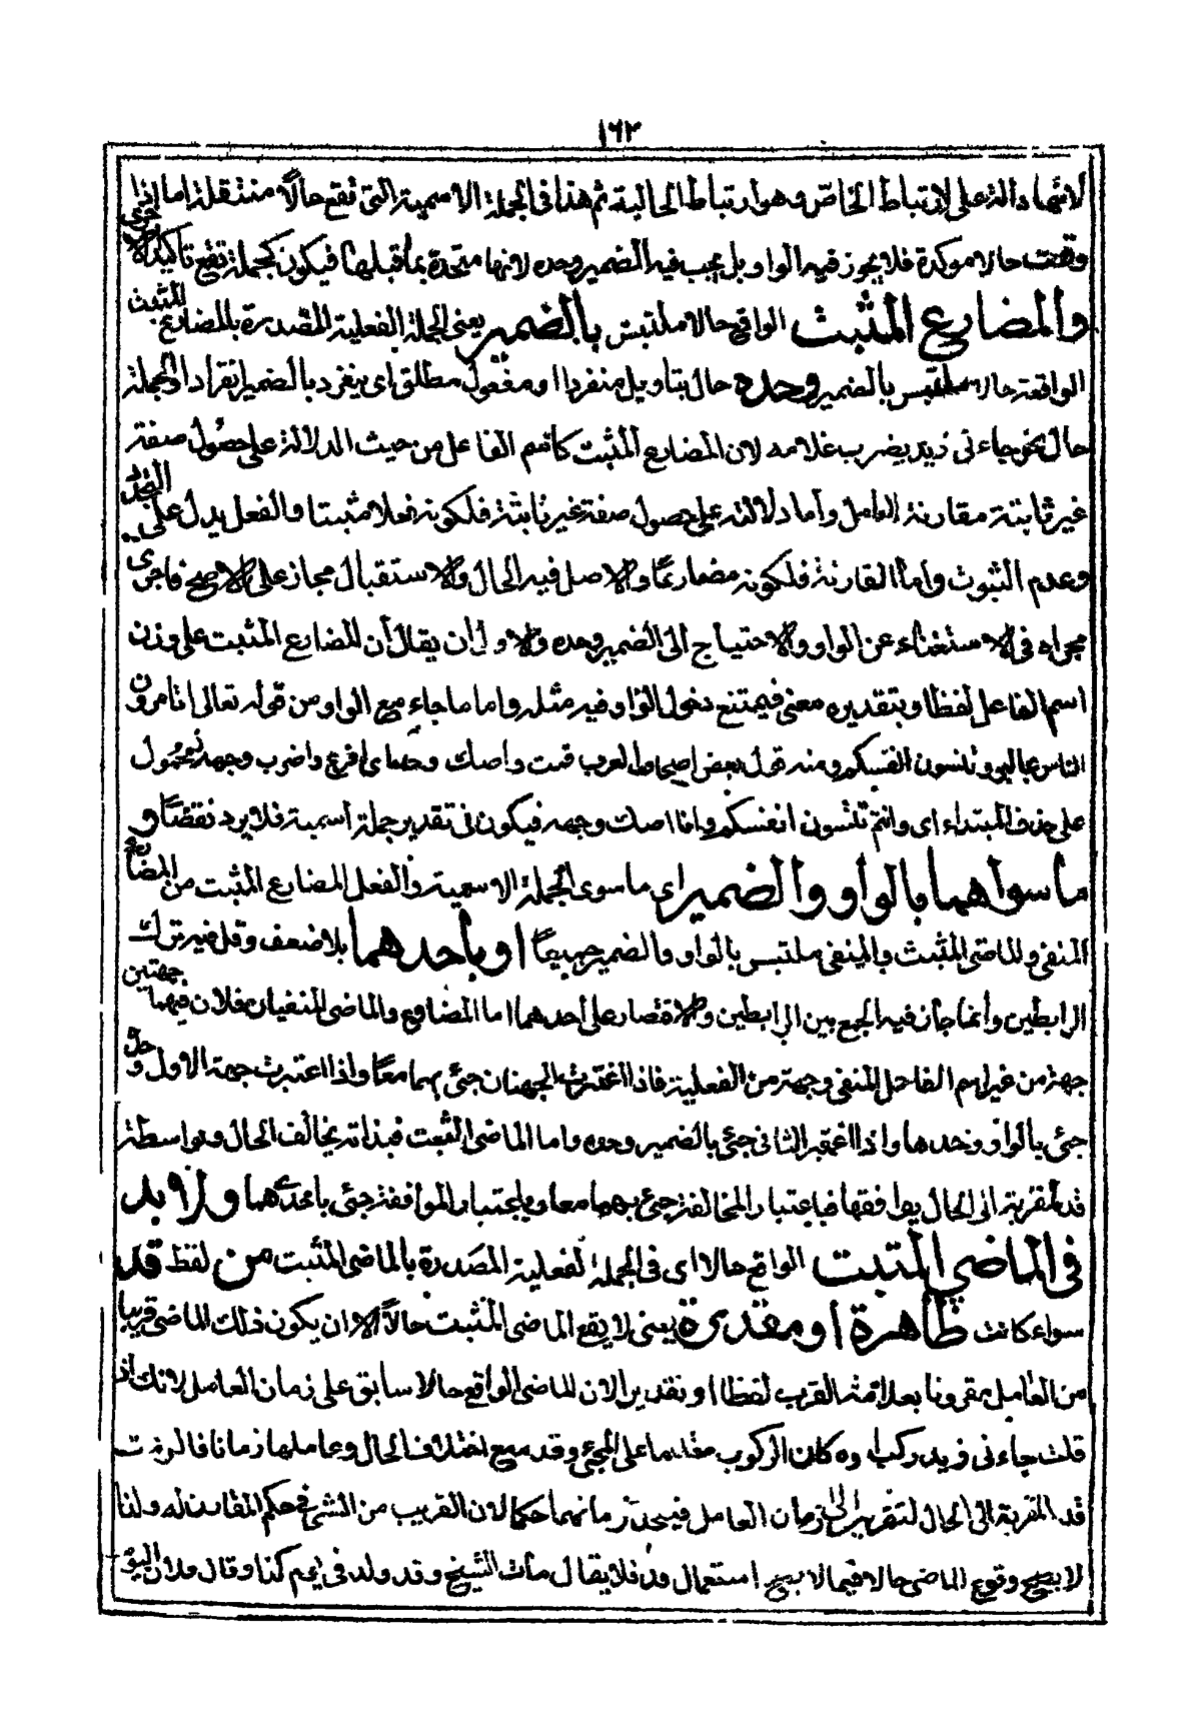 ١٦٢
لانها دالة على الارتباط الخاص وهو ارتباط الحالية ثم هذا فى الجملة الاسمية التى تقع حالا منتقلة اما اذا
وقعت حالا موكدة فلا يجوز فيه الواو بل يجب فيه الضمير وحده لانها متحدة بما قبلها فيكون كجملة تقع تأكيدا لاخرى
والمضارع المثبت الواقع حالا ملتبس بالضمير يعنى الجملة الفعلية المصدرة بالمضارع المثبت
الواقعة حالا ملتبس بالضمير وحده حال بتاويل منفردا او مفعول مطلق اى ينفرد بالضمير انفرادا والجملة
حال نحو جاءنى زيد يضرب غلامه لان المضارع المثبت كاسم الفاعل من حيث الدلالة على حصول صفة
غير ثابتة مقارنة العامل واما دلالته على حصول صفة غير ثابتة فلكونه فعلا مثبتا والفعل يدل على التجدد
وعدم الثبوت واما المقارنة فلكونه مضارعا والاصل فيه الحال والاستقبال مجاز على الاصح فاجرى
مجراه فى الاستغناء عن الواو والاحتياج الى الضمير وحده والاولى ان يقال ان المضارع المثبت على وزن
اسم الفاعل لفظا وبتقديره معنى فيمتنع دخول الواو فيه مثله واما ما جاء مع الواو من قوله تعالى اتامرون
الناس بالبر وتنسون انفسكم ومنه قول بعض اصحاب العرب قمت واصك وجهه اى اقرع واضرب وجهه فمحمول
على حذف المبتداء اى وانتم تنسون انفسكم وانا اصك وجهه فيكون فى تقدير جملة اسمية فلا يرد نقضا و
ما سواهما بالواو والضمير اى ما سوى الجملة الاسمية والفعل المضارع المثبت من المضارع
المنفى والماضى المثبت والمنفى ملتبس بالواو والضمير جميعا او باحدهما بلا ضعف وقل فيه ترك
الرابطين وانما جاز فيه الجمع بين الرابطين والاقتصار على احدهما اما المضارع والماضى المنفيان فلان فيهما جهتين
جهة من غير اسم الفاعل المنفى وجهة من الفعلية فاذا اعتبرت الجهتان جئ بهما معا واذا اعتبرت جهة الاول وحده
جئ بالواو وحدها واذا اعتبر الثانى جئ بالضمير وحده واما الماضى المثبت فبذاته يخالف الحال وبواسطة
قد المقربة الى الحال يوافقها فباعتبار المخالفة جئ بهما معا وباعتبار الموافقة جئ باحدهما ولا بد
فى الماضى المثبت الواقع حالا اى فى الجملة الفعلية المصدرة بالماضى المثبت من لفظ قد
سواء كانت ظاهرة او مقدرة يعنى لا يقع الماضى المثبت حالا الا ان يكون ذلك الماضى قريبا
من العامل مقرونا بعلامة القرب لفظا او تقديرا لان الماضى الواقع حالا سابق على زمان العامل لانك اذا
قلت جاءنى زيد ركب ابوه كان الركوب مقدما على المجئ وقد منع اختلاف الحال وعاملها زمانا فالزمت
قد المقربة الى الحال لتقربه الى زمان العامل فيتحد زمانهما حكما لان القريب من الشئ فى حكم المقارن له ولذا
لا يصح وقوع الماضى حالا فيما لا يصح استعمال قد فلا يقال مات الشيخ وقد ولد فى يوم كذا وقال فلان